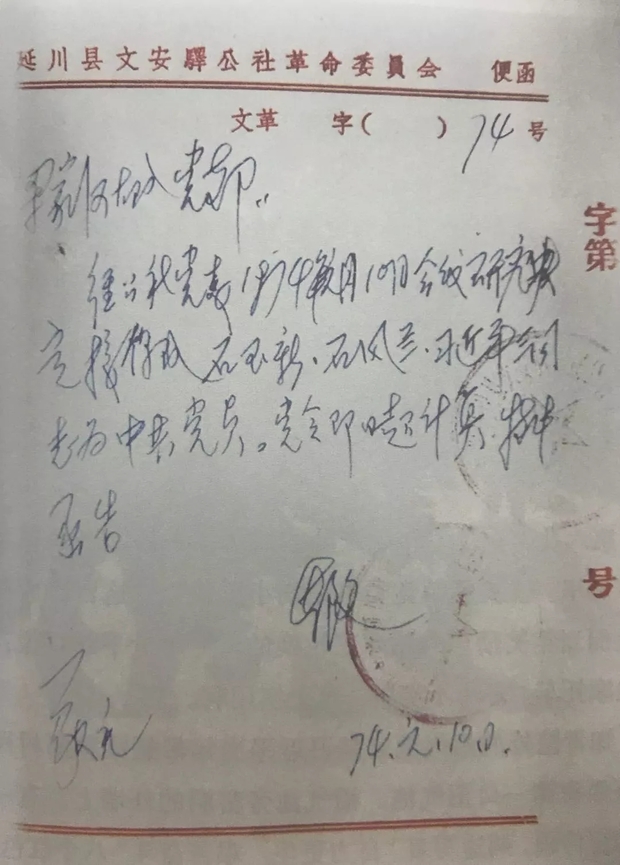 延川县文安驛公社革命委員会 便函
文革 字( ) 74 号
梁家河大队党支部:
经公社党委1974年元月10日会议研究决
定接收 石玉新、石风兰、习近平同
志为中共党员。党令即日起计算 特此
函告
致礼
74.元.10日.
字第
号